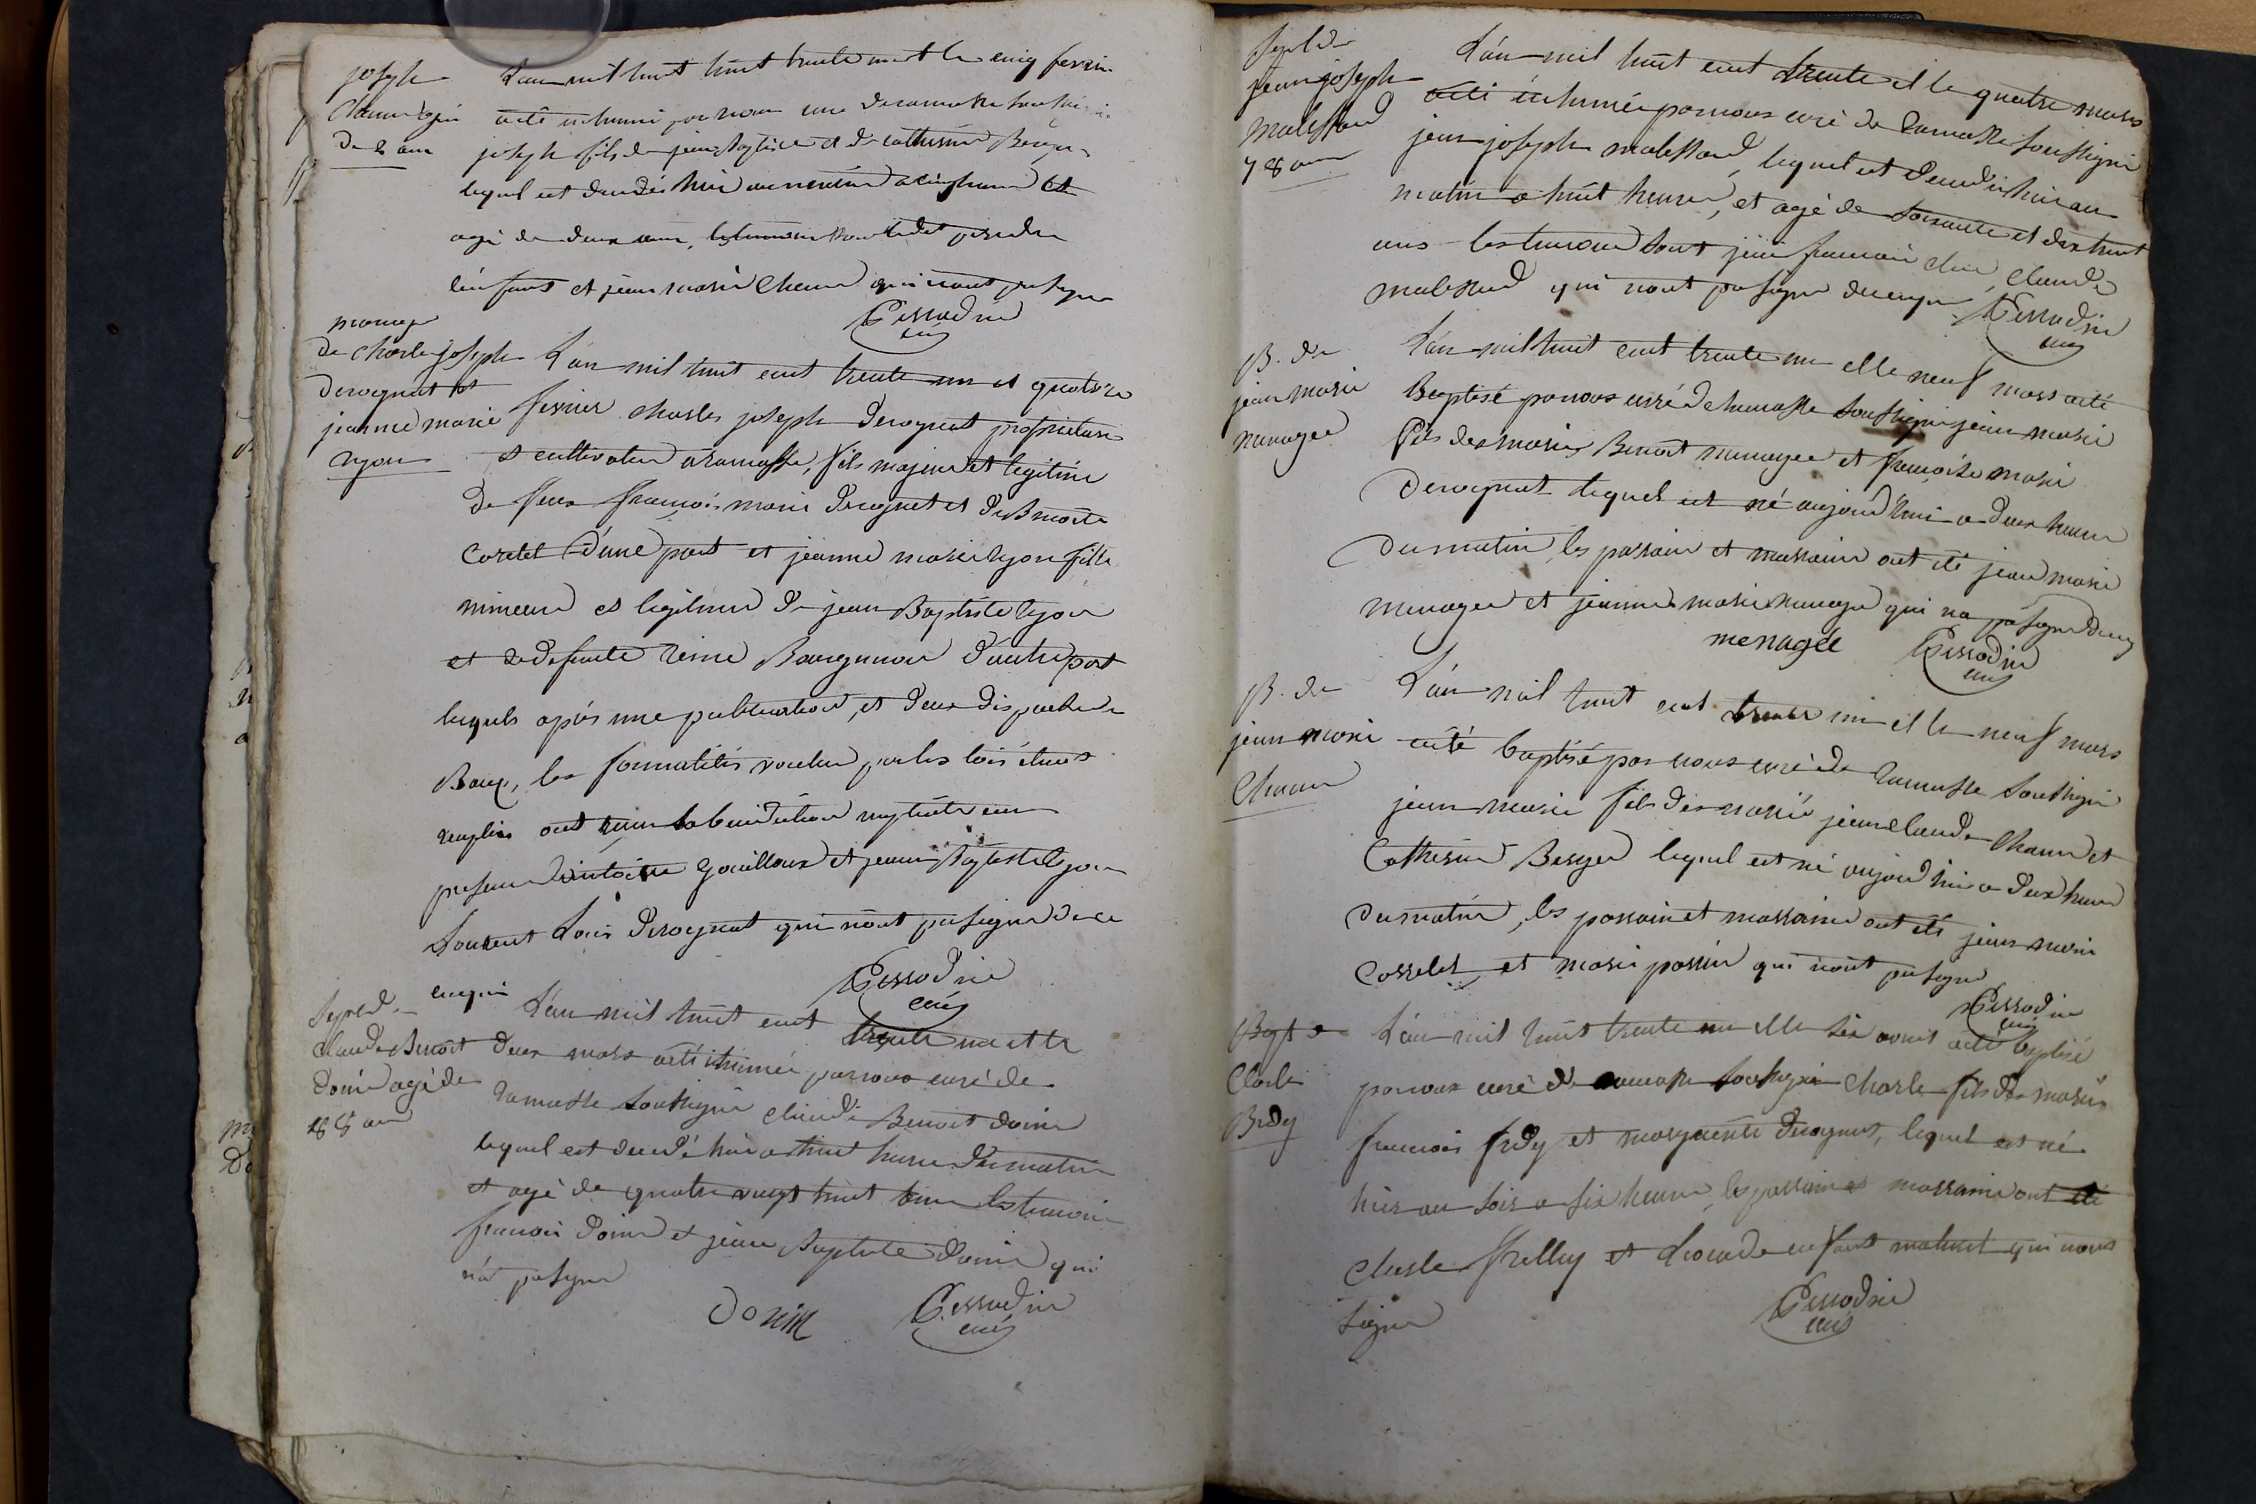 joseph
Chanu agé
de 2 ans
L'an mil huit huit trente un et le cinq fevrier
a été inhumé par nous curé de ramasse soussigné
joseph fils de jean Baptiste et de catherine
lequel est decedés hier au matin a cinq heures et
agé de deux ans, les temoins sont le dit pere de
l'enfant et jean marie Chanu qui n'ont pas signé
Perrodin
curé
mariage
de charle joseph
derognat et
jeanne marie
ryon
L'an mil huit cent trente un et quatorze
fevrier charles joseph derognat proprietaire
et cultivateur a ramasse, fils majeur et legitime
de feux francois marie derognat et de Benoite
Corelet d'une part et jeanne marie ryon fille
mineure et legitime de jean Baptiste ryon
et de defunte reine Bourguinon d'autre part
lequels après une publication, et deux dispenses de
Bans, les formalités voulue par les lois étant
remplies ont reçu la benediction nuptiale en
presence d'antoine gouilloux et jean Baptiste ryon
Laurent Louis derognat qui n'ont pas signé de ce
enquis
Perrodin
curé
Sepred
claude Benoit
Doin agé de
88 ans
L'an mil huit cent trente un et le
deux mars a été inhumé par nous curé de
ramasse soussigné claude Benoit doin
lequel est decedé hier a huit heures du matin
et agé de quatre vingt huit ans les temoins
francois doin et jean Baptiste doin qui
n'a pas signé
Donin
Perrodin
curé
Sepul de
jean joseph
Malessard
78 ans
L'an mil huit cent trente et le quatre mars
a été inhumé par nous curé de Ramasse soussigné
jean joseph malessard, lequel est decedé hier au
matin a huit heures, et agé de soixante et dix huit
ans les temoins sont jean francois, claude
malessard qui n'ont pas signé de enquis
Perrodin
curé
B. de
jean marie
menagee
L'an mil huit cent trente un et le neuf mars a été
Baptisé par nous curé de ramasse soussigné jean marie
fils des mariés Benoit menagee et francoise marie
Derognat lequel est né aujourd'hui a deux heures
du matin, les parrain et marraine ont été jean marie
menagee et jeanne marie menagee qui n'a pas signé
menagée
Perrodin
curé
B. de
jean marie
Chanu
L'an mil huit cent trente un et le neuf mars
a été baptisé par nous curé de ramasse soussigné
jean marie fils des mariés jean claude Chanu et
Catherine Berger lequel est né aujourd'hui a deux heures
du matin, les parrain et marraine ont été jean marie
Corselet, et marie possin qui n'ont pas signé
Perrodin
curé
Bapt de
Charle
Bredy
L'an mil huit trente un et le six avril a été baptisé
par nous curé de ramasse soussigné Charle fils des mariés
francois fredy et marguerite derognat, lequel est né
hier au soir a six heures, les parrain et marraine ont été
charle frelley et Leocade enfant maturel qui n'ont
signé
Perrodin
curé